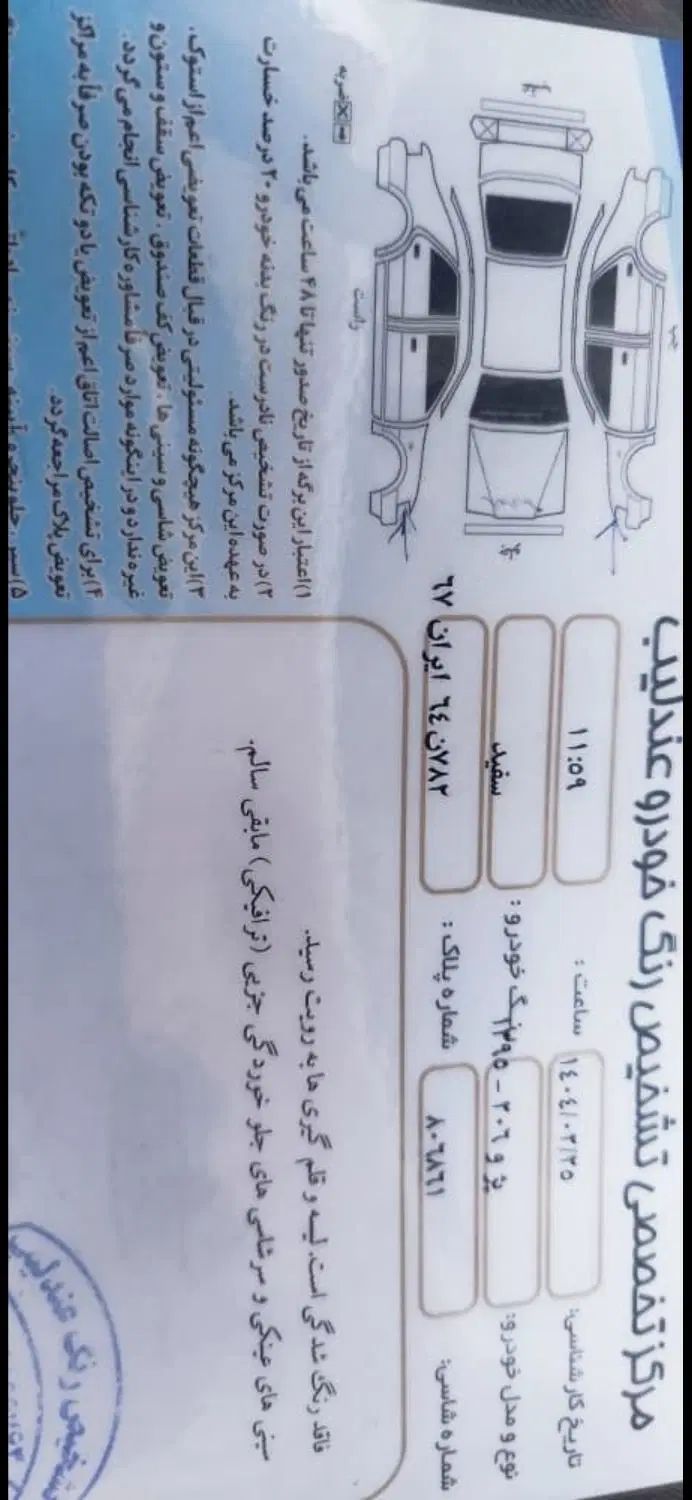 مرکز تخصصی تشخیص رنگ خودرو عندلیب
تاریخ کارشناسی: ۱٤۰٤/۰۲/۲۵
ساعت : ۱۱:۵۹
نوع و مدل خودرو: پژو ۲۰٦ - ۱۳۹۵
رنگ خودرو : سفید
شماره شاسی: ۸۰٦۸٦۱
شماره پلاک : ۷۸۲ن٦٤ ایران ٦۷
فاقد رنگ شدگی است. لیسه و قلم گیری ها به رویت رسید.
سینی های عینکی و سرشاسی های جلو خوردگی جزیی (ترافیکی) مابقی سالم.
راست
ضربه
۱)اعتبار این برگه از تاریخ صدور تنها تا ۴۸ ساعت می باشد.
۲)در صورت تشخیص نادرست در رنگ بدنه خودرو ۲۰ درصد خسارت
به عهده این مرکز می باشد.
۳)این مرکز هیچگونه مسئولیتی در قبال قطعات تعویضی اعم از استوک،
تعویض شاسی و سینی ها، تعویض کف صندوق، تعویض سقف و ستون و
غیره ندارد و در اینگونه موارد صرفا مشاوره کارشناسی انجام می گردد.
۴)برای تشخیص اصالت اتاق اعم از تعویض یا دو تکه بودن صرفا به مراکز
تعویض پلاک مراجعه گردد.
تشخیص رنگ عندلیب